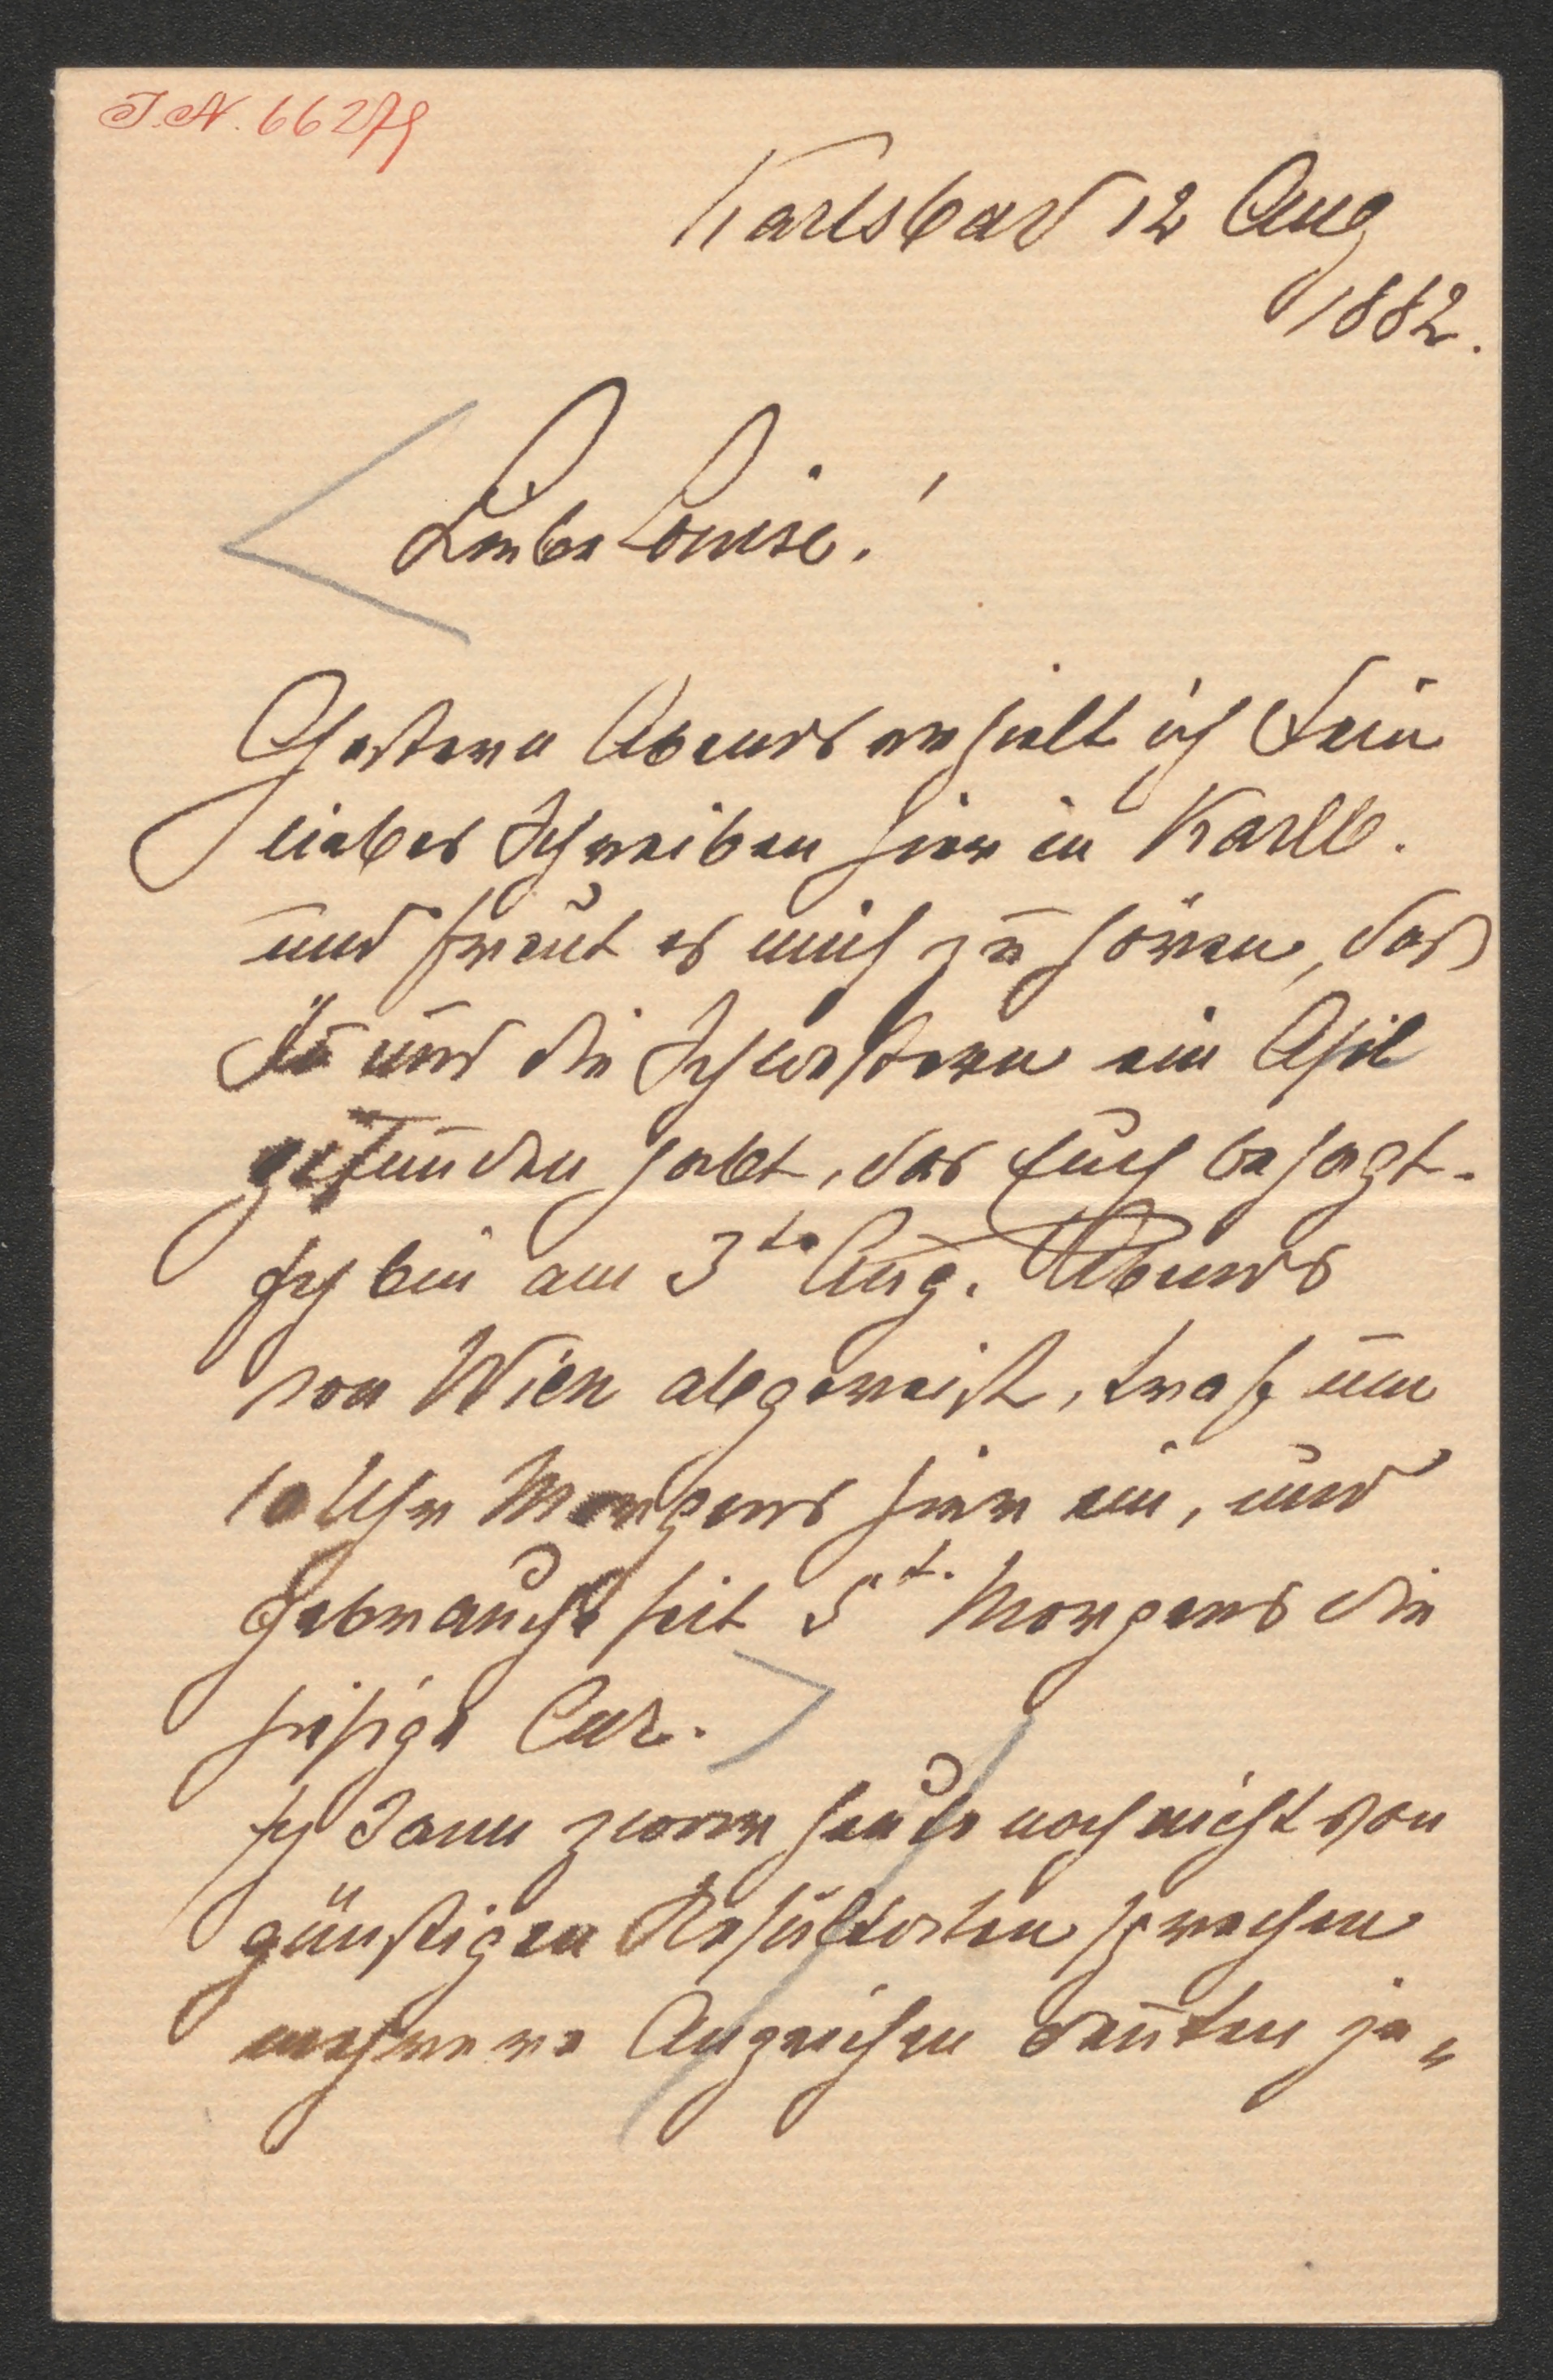 J.N. 66279
Karlsbad 12 Aug
1882.
Liebe Louise!
Gestern Abends erhielt ich Dein
liebes Schreiben hier in Karlb.
und freut es mich zu hören, daß
Du und die Schwestern ein Asil
gefunden habt, das Euch behagt.
Ich bin am 3te Aug. Abends
von Wien abgereist, traf um
10 Uhr Morgens hier ein, und
gebrauche seit 5t. Morgens die
hiesige Cur.
Ich kann zwar heute noch nicht von
günstigen Resultaten sprechen
mehrere Anzeichen deuten je„